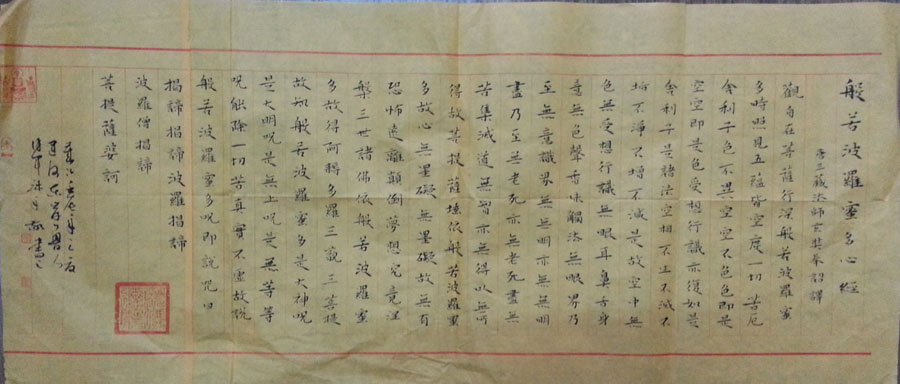 般若波羅蜜多心經
唐三藏法師玄奘奉詔譯
觀自在菩薩行深般若波羅蜜
多時照見五蘊皆空度一切苦厄
舍利子色不異空空不色色即是
空空即是色受想行識亦復如是
舍利子是諸法空相不生不滅不
垢不淨不增不減是故空中無
色無受想行識無眼耳鼻舌身
意無色聲香味觸法無眼界乃
至無意識界無無明亦無無明
盡乃至無老死亦無老死盡無
苦集滅道無智亦無得以無所
得故菩提薩埵依般若波羅蜜
多故心無罣礙無罣礙故無有
恐怖遠離顛倒夢想究竟涅
槃三世諸佛依般若波羅蜜
多故得阿耨多羅三藐三菩提
故知般若波羅蜜多是大神呪
是大明呪是無上呪是無等等
呪能除一切苦真實不虛故說
般若波羅蜜多呪即說呪曰
揭諦揭諦波羅揭諦
波羅僧揭諦
菩提薩婆訶